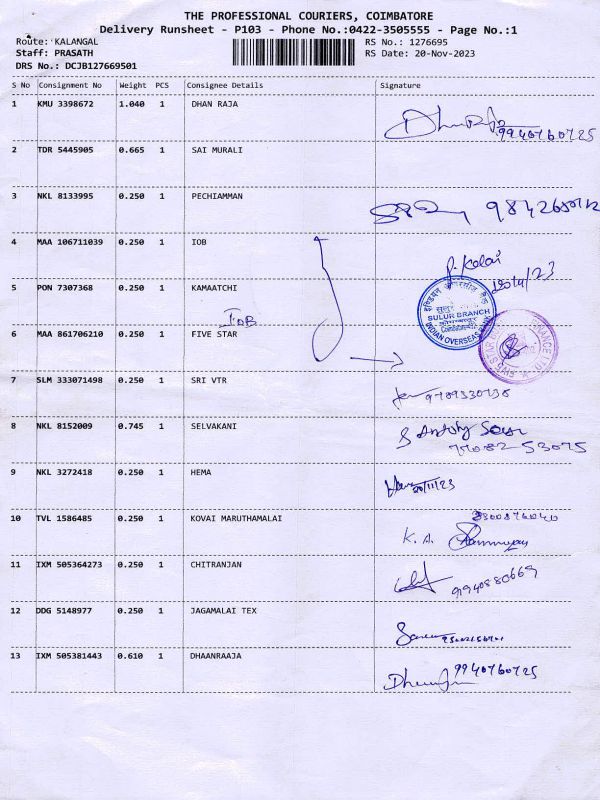 THE PROFESSIONAL COURIERS, COIMBATORE
Delivery Runsheet - P103 - Phone No.:0422-3505555 - Page No.:1
Route: KALANGAL RS No.: 1276695
Staff: PRASATH RS Date: 20-Nov-2023
DRS No.: DCJB127669501
S No Consignment No Weight PCS Consignee Details Signature
1 KMU 3398672 1.040 1 DHAN RAJA
9940760725
2 TDR 5445905 0.665 1 SAI MURALI
3 NKL 8133995 0.250 1 PECHIAMMAN
4 MAA 106711039 0.250 1 IOB
P. Kalai
20/11/23
5 PON 7307368 0.250 1 KAMAATCHI
SULUR BRANCH
INDIAN OVERSEAS BANK
IOB
6 MAA 861706210 0.250 1 FIVE STAR
7 SLM 333071498 0.250 1 SRI VTR
8 NKL 8152009 0.745 1 SELVAKANI
S Antony
75082 53075
9 NKL 3272418 0.250 1 HEMA
20/11/23
10 TVL 1586485 0.250 1 KOVAI MARUTHAMALAI
K. A.
11 IXM 505364273 0.250 1 CHITRANJAN
9940880669
12 DDG 5148977 0.250 1 JAGAMALAI TEX
13 IXM 505381443 0.610 1 DHAANRAAJA
9940760725